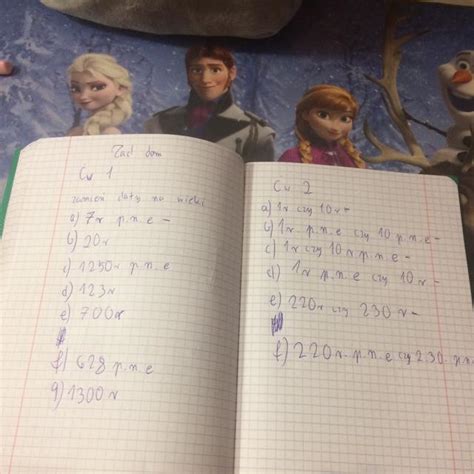 Zad dom
Ćw 1
zamień daty na wieki
a) 7r p.n.e -
b) 20r
c) 1250r p.n.e
d) 123r
e) 700r
f) 628 p.n.e
g) 1300r
Ćw 2
a) 1r czy 10r -
b) 1r. p.n.e czy 10 p.n.e -
c) 1r czy 10r p.n.e -
d) 1r p.n.e czy 10r -
e) 220r czy 230r -
f) 220r. p.n.e czy 230. p.n.